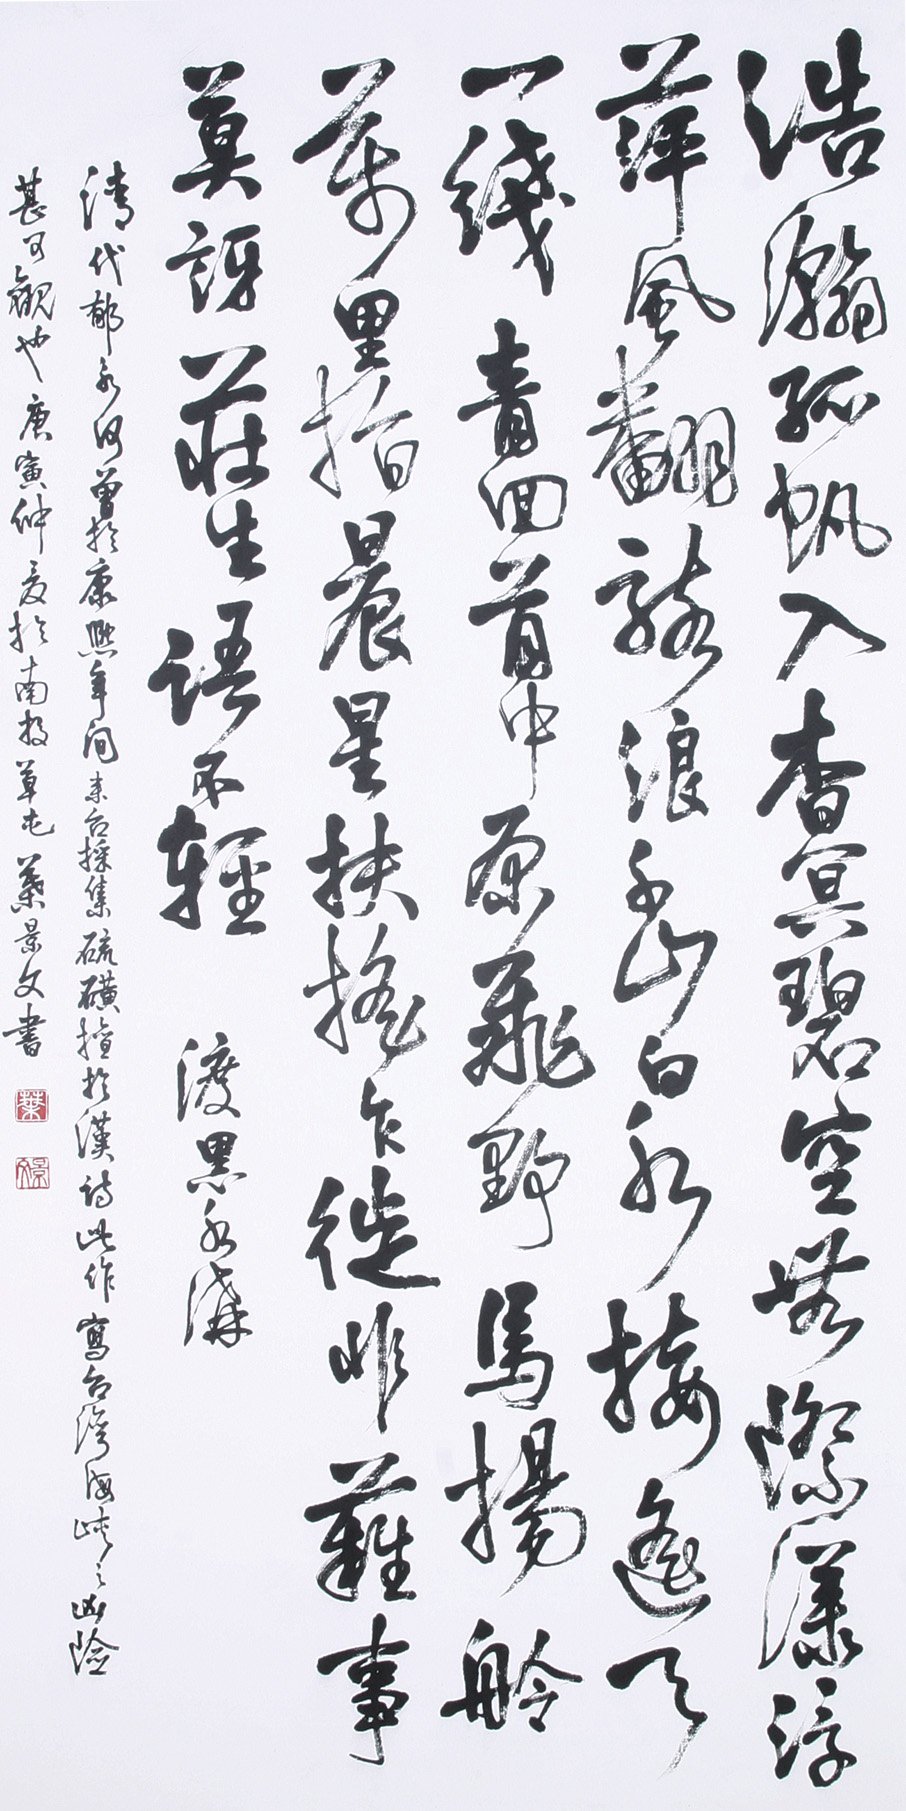 浩瀚孤帆入杳冥碧空無際漾浮
萍風翻駭浪千山白水接遙天
一綫青回首中原飛野馬揚舲
萬里指晨星扶搖乍徙非難事
莫訝莊生語不輕 渡黑水溝
清代郁永河曾於康熙年间来台採集硫磺擅於漢詩此作寫台灣海峽之凶險
甚可觀也庚寅仲夏於南投草屯葉景文書
葉
景文